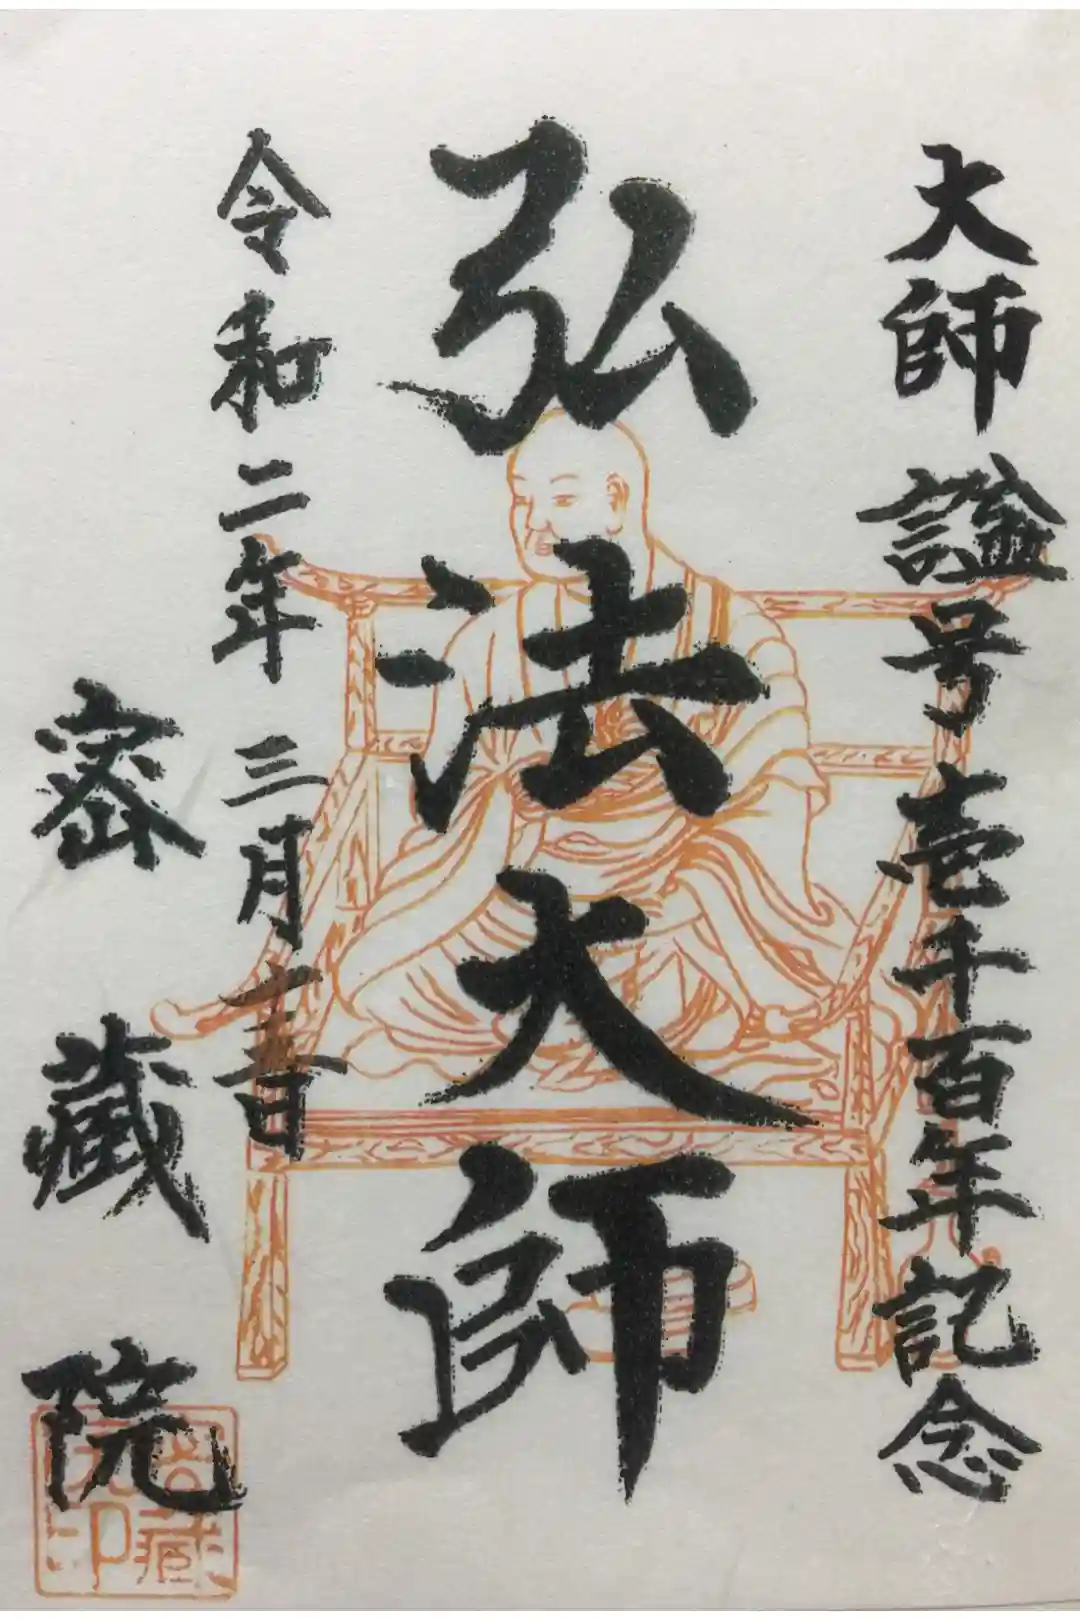 大師謚号壱千百年記念
弘法大師
令和二年三月
密蔵院
密藏
院印